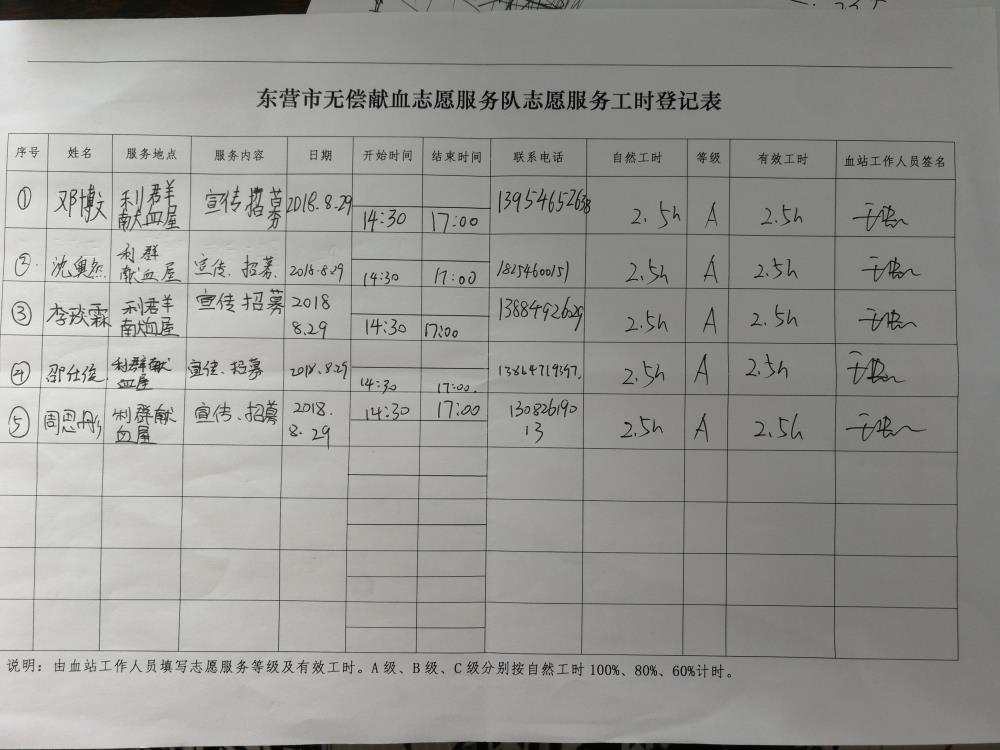 东营市无偿献血志愿服务队志愿服务工时登记表
序号 姓名 服务地点 服务内容 日期 开始时间 结束时间 联系电话 自然工时 等级 有效工时 血站工作人员签名
① 邓博文 利群 宣传招募 2018.8.29 14:30 17:00 2.5h A 2.5h
献血屋
② 利群 宣传、招募 2018.8.29 14:30 17:00 18254600151 2.5h A 2.5h
献血屋
③ 李琰霖 利群 宣传招募 2018 14:30 17:00 13884926029 2.5h A 2.5h
献血屋 8.29
④ 邵仕俊 利群献 宣传、招募 2018.8.29 14:30 17:00. 13864719397. 2.5h A 2.5h
血屋
⑤ 周恩彤 利群献 宣传、招募 2018. 14:30 17:00 130826190 2.5h A 2.5h
血屋 8.29 13
说明：由血站工作人员填写志愿服务等级及有效工时。A级、B级、C级分别按自然工时100%、80%、60%计时。